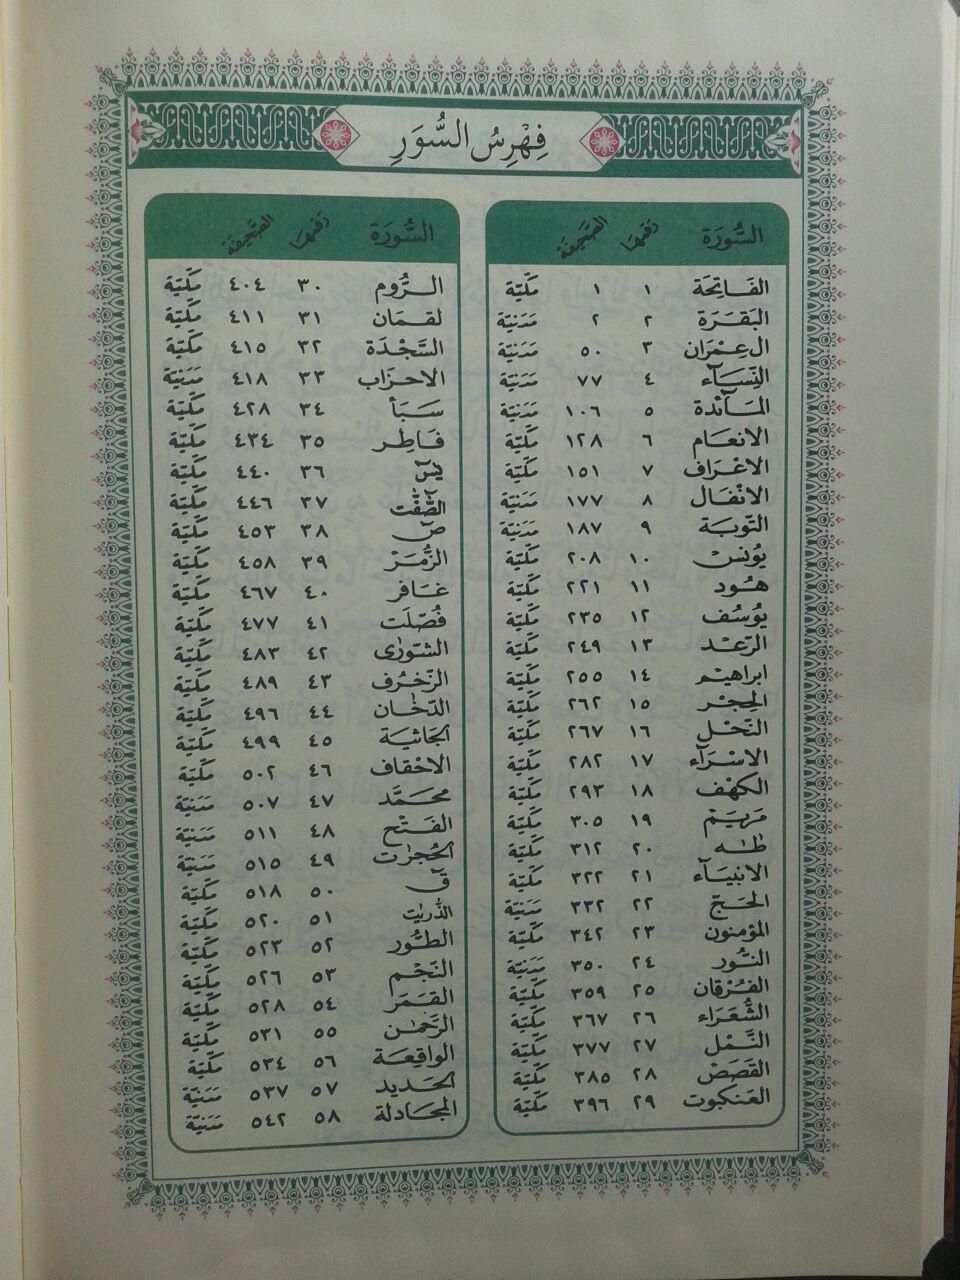 فِهْرِسُ السُّوَرِ
السُّورَة رقمها الصَّحِيفَة
الفَاتِحَة ١ ١ مكّيّة
البَقَرَة ٢ ٢ مَدَنيّة
ال عِمْرَان ٣ ٥٠ مَدَنيّة
النِّسَآء ٤ ٧٧ مَدَنيّة
المَآئدة ٥ ١٠٦ مَدَنيّة
الانعَام ٦ ١٢٨ مكّيّة
الاعْرَاف ٧ ١٥١ مكّيّة
الانْفَال ٨ ١٧٧ مَدَنيّة
التّوبَة ٩ ١٨٧ مَدَنيّة
يُونسْ ١٠ ٢٠٨ مكّيّة
هُود ١١ ٢٢١ مكّيّة
يُوسُف ١٢ ٢٣٥ مكّيّة
الرّعْد ١٣ ٢٤٩ مكّيّة
ابراهيم ١٤ ٢٥٥ مكّيّة
الحِجْر ١٥ ٢٦٢ مكّيّة
النّحْل ١٦ ٢٦٧ مكّيّة
الاسْرَآء ١٧ ٢٨٢ مكّيّة
الكهْف ١٨ ٢٩٣ مكّيّة
مَريَم ١٩ ٣٠٥ مكّيّة
طٰه ٢٠ ٣١٢ مكّيّة
الانبيَآء ٢١ ٣٢٢ مكّيّة
الحَجّ ٢٢ ٣٣٢ مَدَنيّة
المؤمنون ٢٣ ٣٤٢ مكّيّة
النُّور ٢٤ ٣٥٠ مَدَنيّة
الفُرْقان ٢٥ ٣٥٩ مكّيّة
الشُّعَرَاء ٢٦ ٣٦٧ مكّيّة
النَّمْل ٢٧ ٣٧٧ مكّيّة
القَصَصْ ٢٨ ٣٨٥ مكّيّة
العَنكبوت ٢٩ ٣٩٦ مكّيّة
السُّورَة رقمها الصَّحِيفَة
الرُّوم ٣٠ ٤٠٤ مكّيّة
لقمَان ٣١ ٤١١ مكّيّة
السَّجْدَة ٣٢ ٤١٥ مكّيّة
الاحزَاب ٣٣ ٤١٨ مَدَنيّة
سَبَأ ٣٤ ٤٢٨ مكّيّة
فَاطِر ٣٥ ٤٣٤ مكّيّة
يٰسٓ ٣٦ ٤٤٠ مكّيّة
الصّٰٓفّٰت ٣٧ ٤٤٦ مكّيّة
صٓ ٣٨ ٤٥٣ مكّيّة
الزُّمَرْ ٣٩ ٤٥٨ مكّيّة
غَافر ٤٠ ٤٦٧ مكّيّة
فُصّلَت ٤١ ٤٧٧ مكّيّة
الشّورٰى ٤٢ ٤٨٣ مكّيّة
الزّخرُف ٤٣ ٤٨٩ مكّيّة
الدّخَان ٤٤ ٤٩٦ مكّيّة
الجَاثيَة ٤٥ ٤٩٩ مكّيّة
الاحْقاف ٤٦ ٥٠٢ مكّيّة
محَمَّد ٤٧ ٥٠٧ مَدَنيّة
الفَتْح ٤٨ ٥١١ مَدَنيّة
الحُجرٰت ٤٩ ٥١٥ مَدَنيّة
قٓ ٥٠ ٥١٨ مكّيّة
الذّٰريٰت ٥١ ٥٢٠ مكّيّة
الطّور ٥٢ ٥٢٣ مكّيّة
النّجْم ٥٣ ٥٢٦ مكّيّة
القمَر ٥٤ ٥٢٨ مكّيّة
الرّحمٰن ٥٥ ٥٣١ مكّيّة
الواقِعَة ٥٦ ٥٣٤ مكّيّة
الحَديد ٥٧ ٥٣٧ مَدَنيّة
المجَادلة ٥٨ ٥٤٢ مَدَنيّة